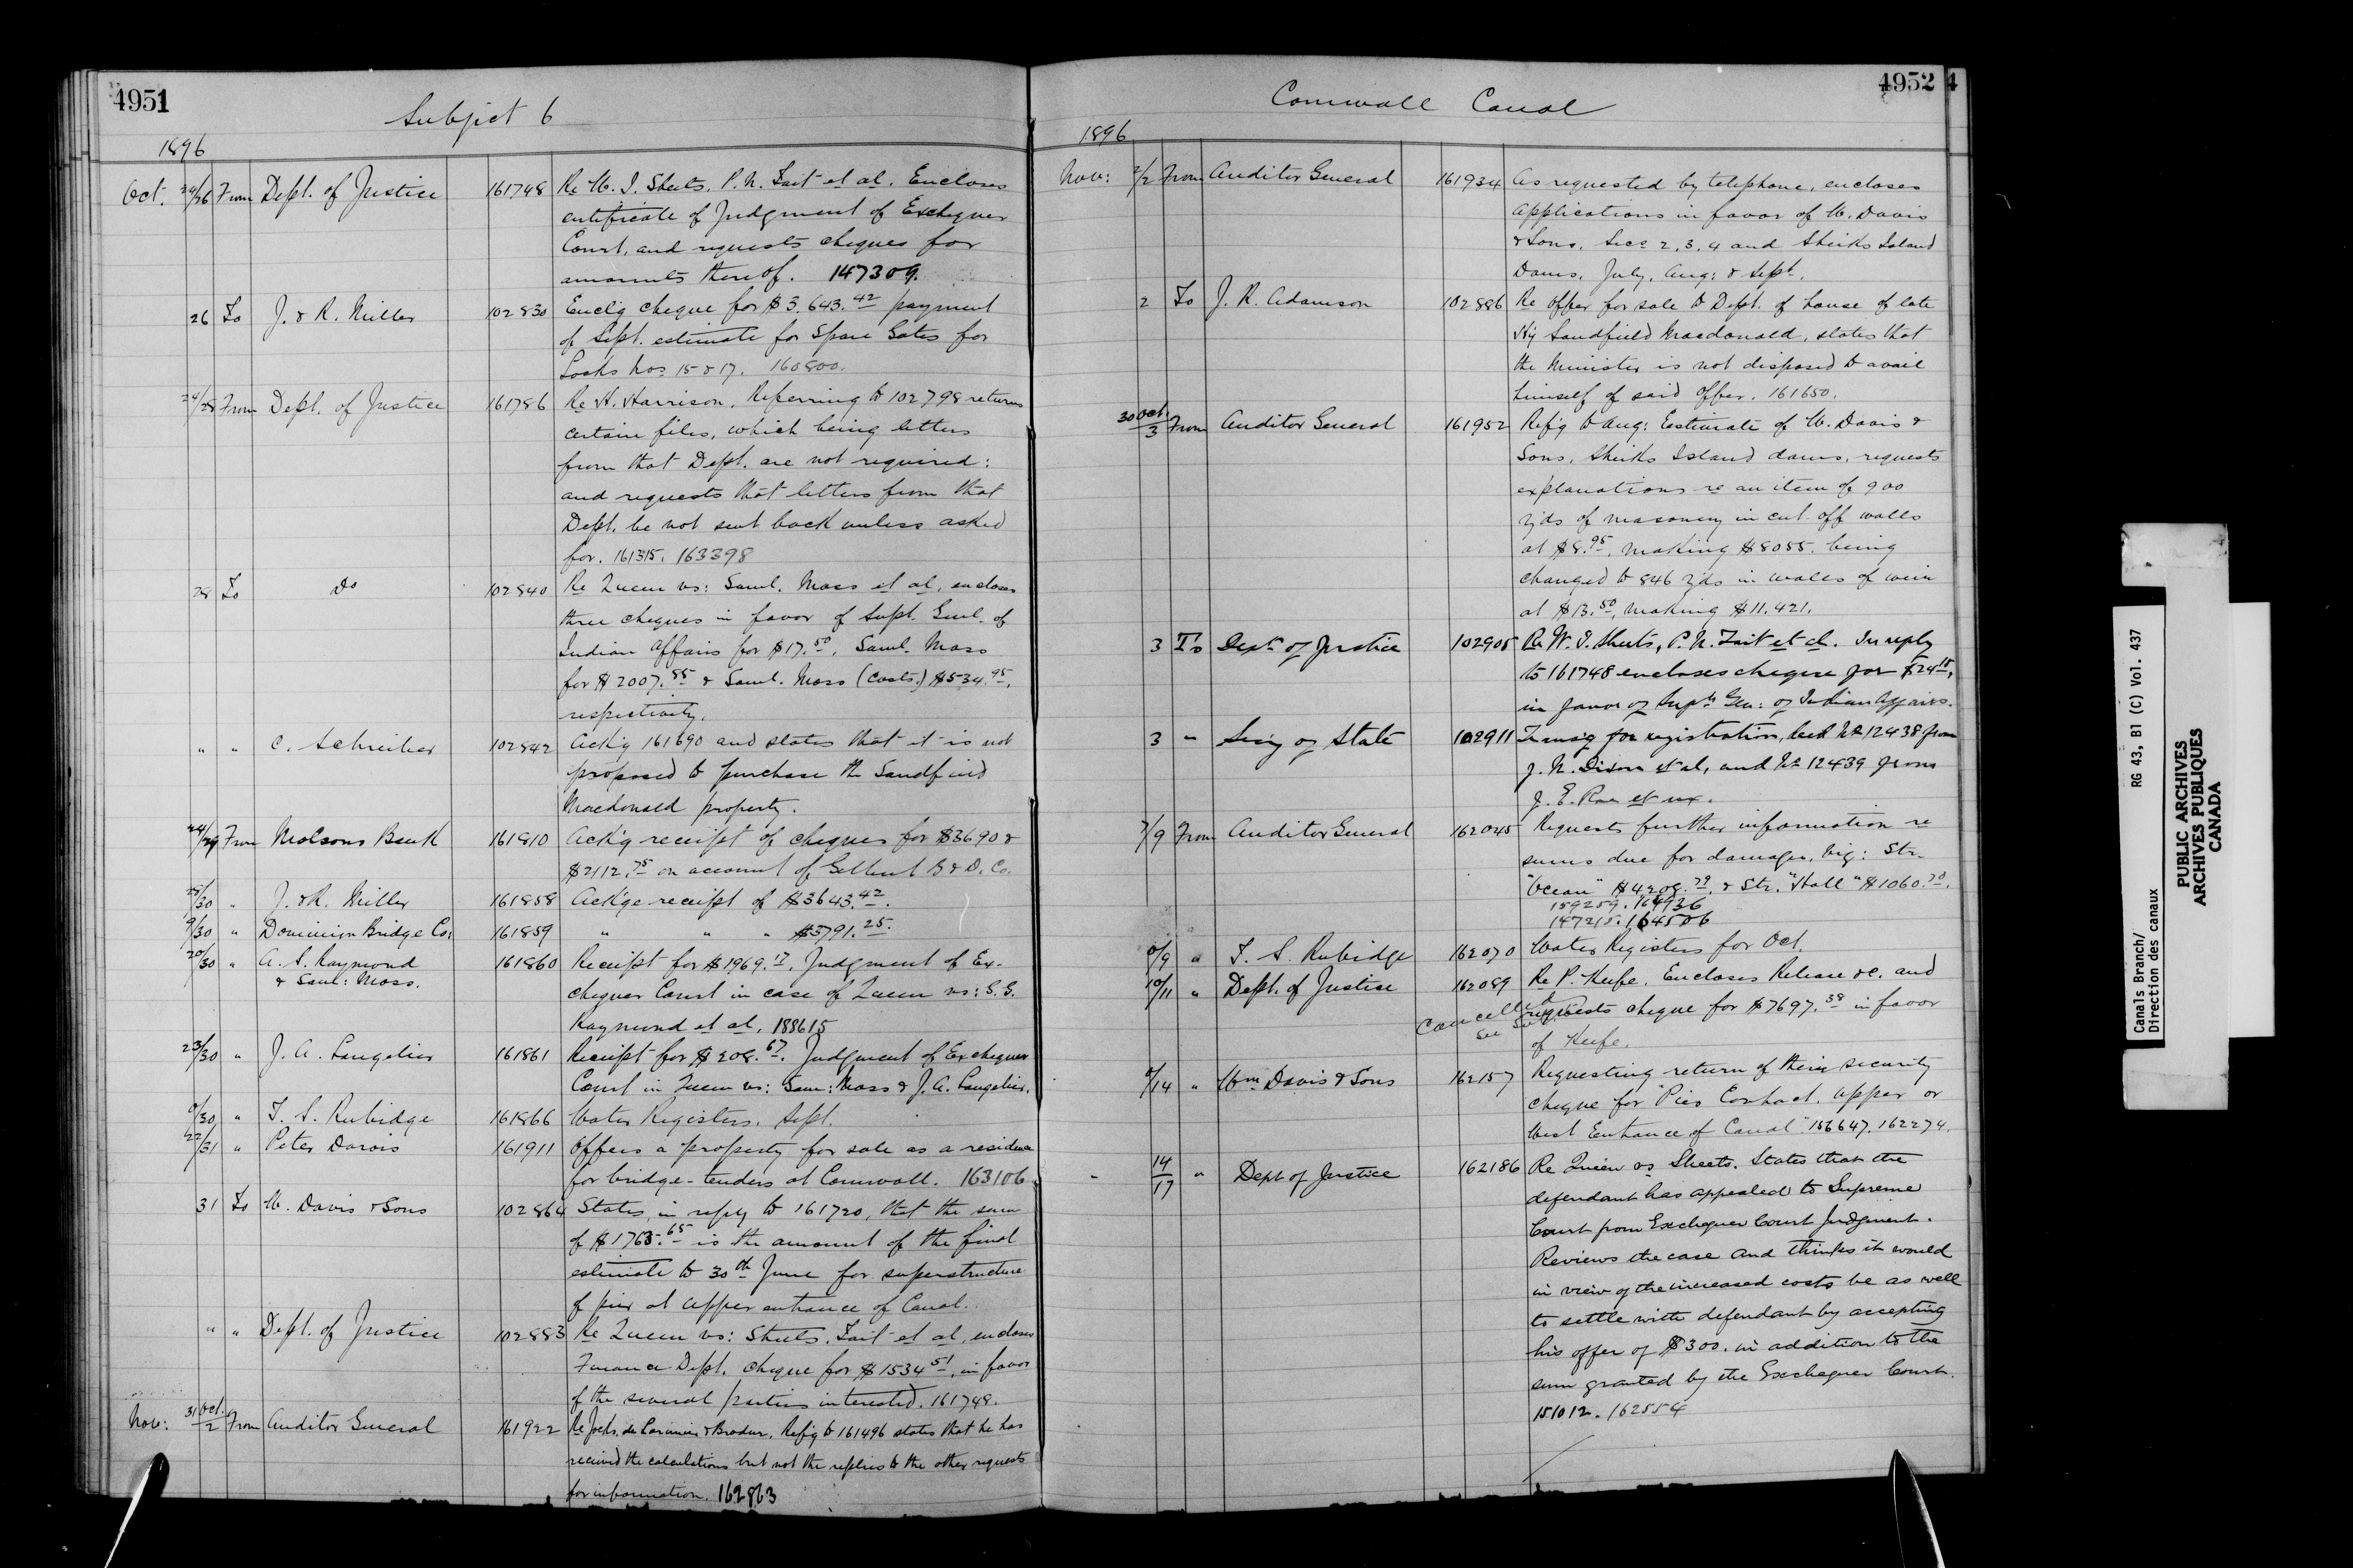 4951
Subject 6
1896
Oct. 24/26 From Dept. of Justice 161748 Re W. J. Sheets, P. N. Tait et al. Encloses
certificate of Judgment of Exchequer
Court, and requests cheques for
amounts thereof. 147309.
26 To J. & R. Miller 102830 Encl'g cheque for $3,643.42 payment
of Sept. estimate for Spare Gates for
Locks Nos 15 & 17. 160800.
24/28 From Dept. of Justice 161786 Re H. Harrison. Referring to 102798 returns
certain files, which being letters
from that Dept. are not required:
and requests that letters from that
Dept. be not sent back unless asked
for. 161315. 163398
28 To Do 102840 Re Queen vs: Saml. Moss et al, encloses
three cheques in favor of Supt. Genl. of
Indian Affairs for $17.50, Saml. Moss
for $2007.85 & Saml. Moss (Costs.) $534.95,
respectively.
" " C. Schreiber 102842 Ack'g 161690 and states that it is not
proposed to purchase the Sandfield
Macdonald property.
24/29 From Molsons Bank 161810 Ack'g receipt of cheques for $3690 &
$2112.75 on account of Gilbert B & D. Co.
28/30 " J. & R. Miller 161858 Ack'ge receipt of $3643.42.
9/30 " Dominion Bridge Co: 161859 " " " $3791.25.
20/30 " A. S. Raymond 161860 Receipt for $1969.17, Judgment of Ex-
& Saml: Moss. chequer Court in case of Queen vs: S. S.
Raymond et al. 188615
23/30 " J. A. Langelier 161861 Receipt for $208.67. Judgment of Exchequer
Court in Queen vs: Sam: Moss & J. A. Langelier.
0/30 " T. S. Rubidge 161866 Water Registers. Sept.
22/31 " Peter Darois 161911 Offers a property for sale as a residence
for bridge-tenders at Cornwall. 163106
31 To W. Davis & Sons 102864 States, in reply to 161720, that the sum
of $1765.65 is the amount of the final
estimate to 30th June for superstructure
of pier at upper entrance of Canal.
" " Dept. of Justice 102883 Re Queen vs: Sheets, Tait et al, encloses
Finance Dept. cheque for $1534.51, in favor
of the several parties interested. 161748.
Nov: 31 Oct./2 From Auditor General 161922 Re Jochs. de & Brodeur. Ref'g to 161496 states that he has
received the calculations but not the replies to the other requests
for information. 162863
4952 4
Cornwall Canal
1896
Nov: 2/2 From Auditor General 161934 As requested by telephone, encloses
applications in favor of W. Davis
& Sons. Secs 2, 3, 4 and Sheiks Island
Dams, July, Aug: & Sept.
2 To J. R. Adamson 102886 Re offer for sale to Dept. of house of late
Sandfield Macdonald, states that
the Minister is not disposed to avail
himself of said offer. 161650.
30 Oct./3 From Auditor General 161952 Ref'g to Aug: Estimate of W. Davis &
Sons, Sheiks Island dams, requests
explanations re an item of 900
yds of masonry in cut off walls
at $8.95, making $8055. being
changed to 846 yds in walls of weir
at $13.50, making $11,421.
3 To Dept of Justice 102905 Re W. J. Sheets, P. N. Tait et al. In reply
to 161748 encloses cheque for $24.15,
in favor of Supt Gen: of Indian Affairs.
3 " Secy of State 102911 Transg for registration, deed No 12438 from
J. N. Dixon et al, and No 12439 from
J. E. Rae et ux.
7/9 From Auditor General 162045 Requests further information re
sums due for damages, viz: Str.
"Ocean" $4208.79, & Str. "Hall" $1060.70.
159259. 164936
147215. 164506
0/9 " T. S. Rubidge 162070 Water Registers for Oct.
10/11 " Dept. of Justice 162089 Re P. Keefe. Encloses Release &c. and
Cancelled requests cheque for $7697.38 in favor
See of Keefe.
0/14 " Wm Davis & Sons 162157 Requesting return of their security
cheque for "Pier Contract, upper or
West Entrance of Canal." 156647. 162274.
14/17 " Dept of Justice 162186 Re Queen vs Sheets. States that the
defendant has appealed to Supreme
Court from Exchequer Court Judgment.
Reviews the case and thinks it would
in view of the increased costs be as well
to settle with defendant by accepting
his offer of $300. in addition to the
sum granted by the Exchequer Court.
151012. 162554
Canals Branch/ RG 43, B1 (C) Vol. 437
Direction des canaux
PUBLIC ARCHIVES
ARCHIVES PUBLIQUES
CANADA